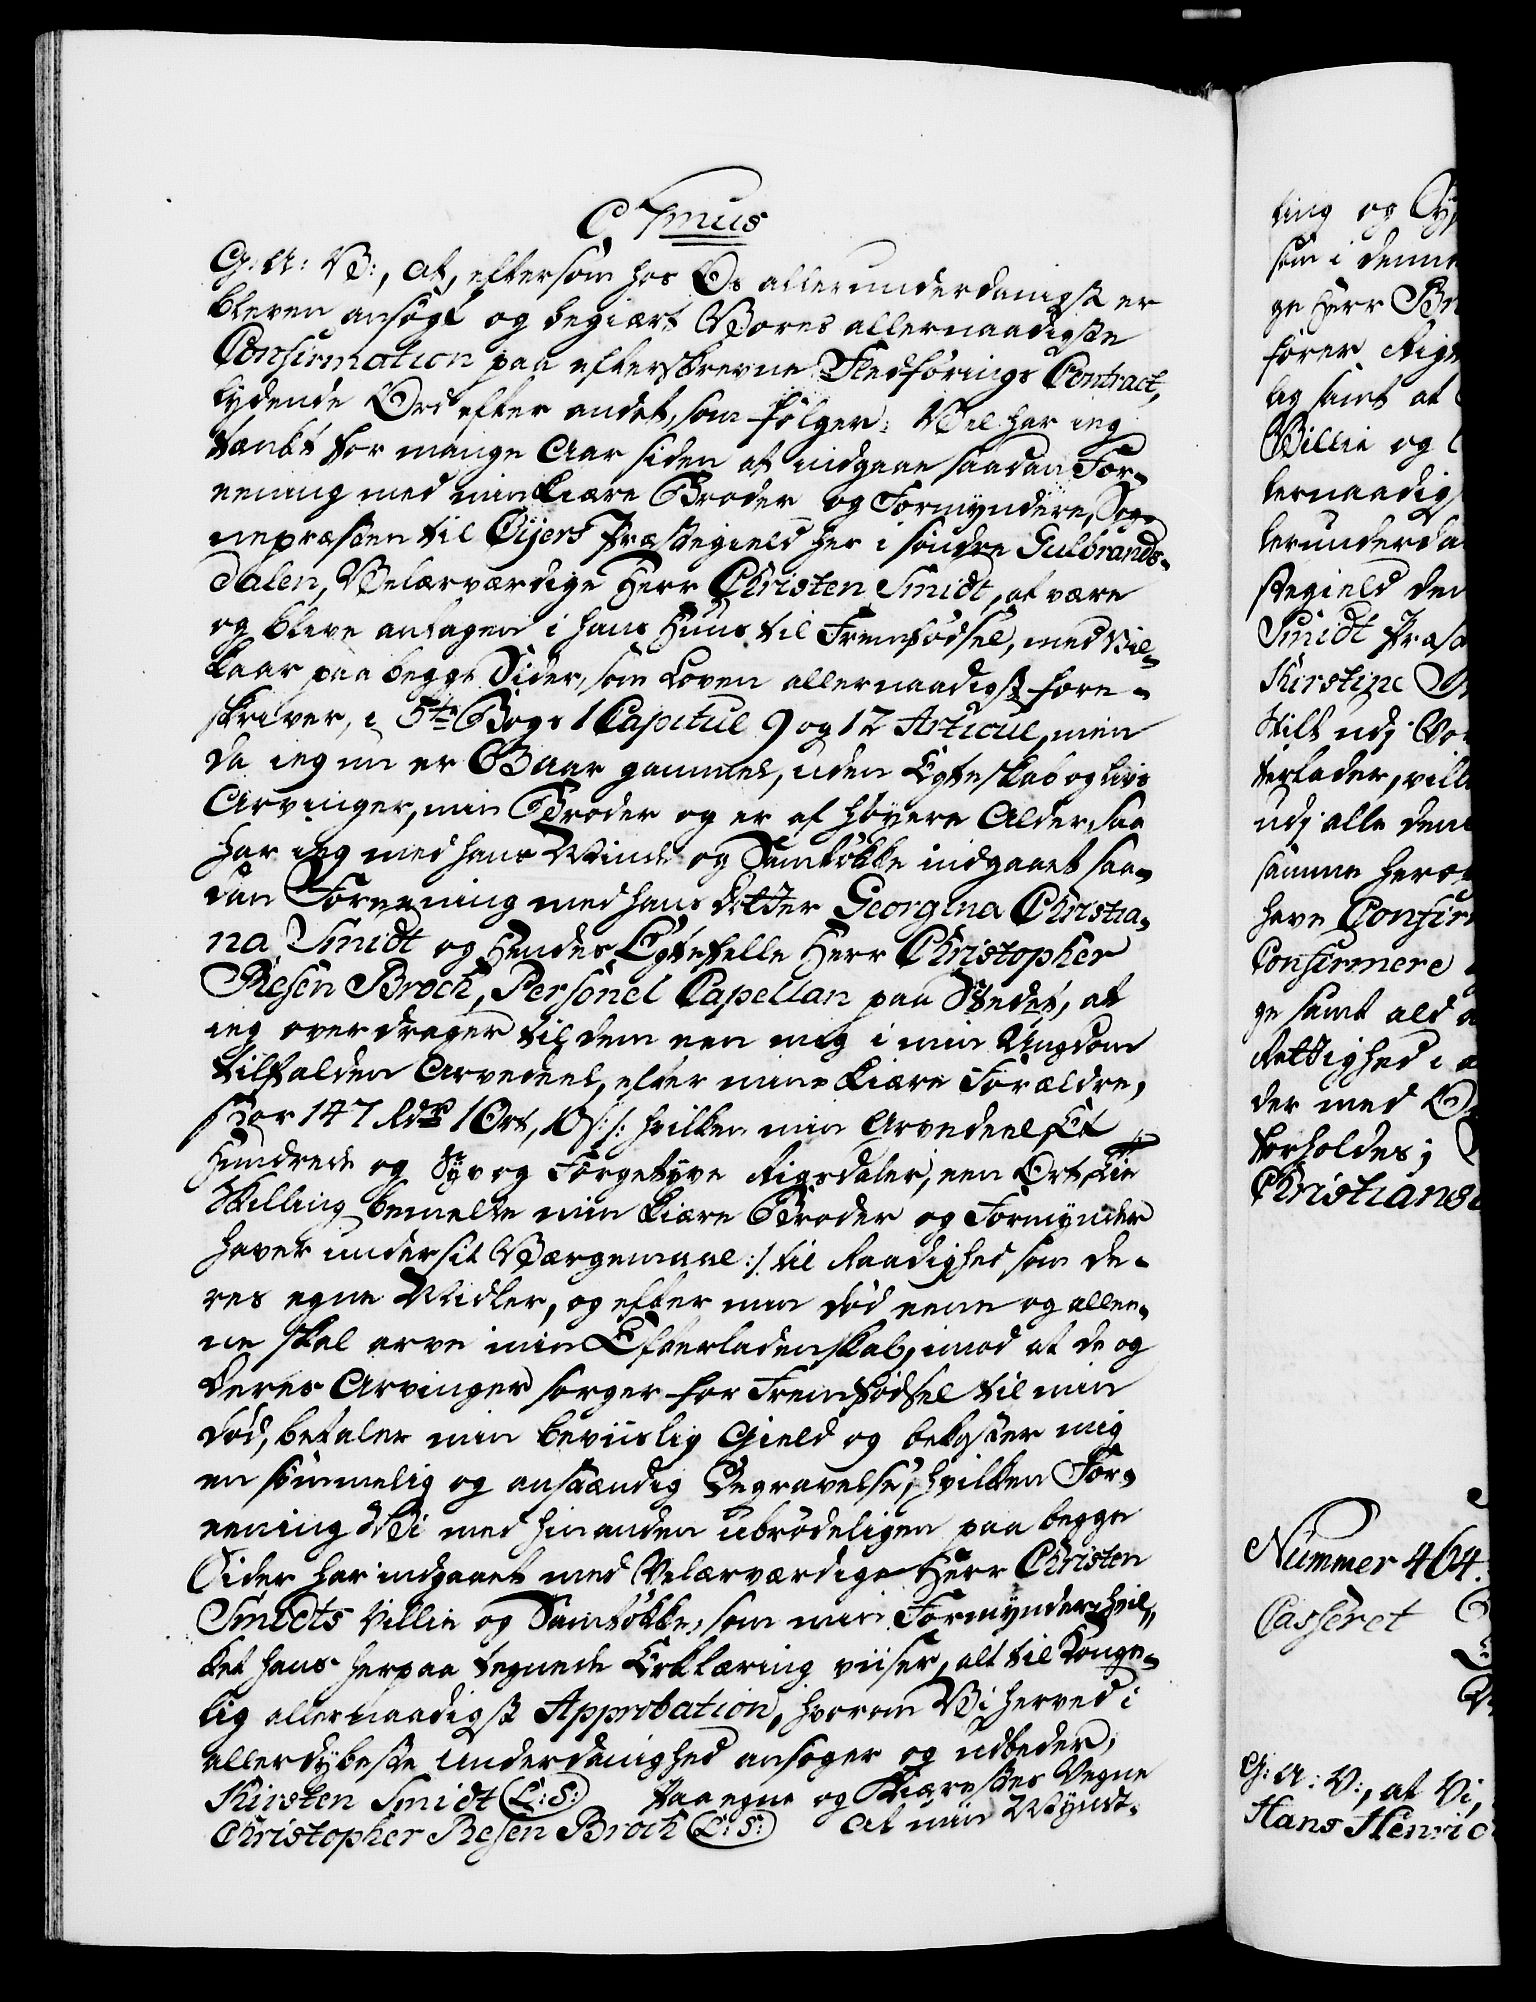 C 7mus
G: A: V:, at, eftersom hos Os allerunderdanigst er
bleven ansögt og begiært Vores allernaadigste
Confirmation paa efterskrevne Fledförings Contract,
lydende Ord efter andet, som fölger: Vel har ieg
tænkt for mange Aar siden at indgaae saadan For-
eening med min kiære Broder og Formyndere, Sog-
nepræsten til Öijers Præstegield her i söndre Gulbrands-
dalen, Velærværdige Herr Christen Smidt, at være
og blive antagen i hans Huus til Fremfödsel, med Vil-
kaar paa begge Sider, som Loven allernaadigst fore-
skriver, i 5te Bogs 1 Capitul 9 og 12 Articul, men
da ieg nu er Aar gammel, uden Egteskab og livs
Arvinger, min Broder og er af höyere Alder, saa
har ieg med hans Minde og Samtökke indgaaet saa-
dan Foreening med hans datter Georgina Christia-
na Smidt og hendes Egtefelle Herr Christopher
Resen Broch, Personel Capellan paa Stedet, at
ieg overdrager til dem een mig i min Ungdom
tilfalden Arvedeel, efter mine kiære Forældre,
stor 147 Rdr 1 Ort, 10 s: /: hvilken min Arvedeel Et
Hundrede og Syv og Förgetyve Rigsdaler, een Ort, tie
Skilling bemelte min kiære Broder og Formynder
haver under sit Værgemaal :/ til Raadighed som de-
res egne Midler, og efter min död eene og allee-
ne skal arve min Efterladenskab, imod at de og
deres Arvinger sörger for Fremfödsel til min
död, betaler min beviislig Gield og bekoster mig
en sömmelig og anstændig Begravelse, hvilken For-
eening Vi med hinanden ubrödeligen paa begge
Sider har indgaaet med Velærværdige Herr Christen
Smidts Villie og Samtökke, som min Formynder, hvil-
ket hans herpaa tegnede Erklæring viiser, alt til Konge-
lig allernaadigst Approbation, hvorom Vi herved i
allerdybeste Underdanighed ansöger og udbeder,
Kirsten Smidt (L:S:) Paa egne og Kiærestes Vegne
Christopher Resen Broch (L:S:) At min Mynd-
ting og
som i denne
ge Herr
förer
lag samt at
Villie og
lernaadigst
lerunderda
stegield
Smidt
Kirstine
udj
terlader, vill
udj alle
samme
have Confir
Confirmere
ge samt ald
Rettighed i
der med
forholdes;
Christians
Nummer 464.
Casseret
G: A: V:, at Vi,
Hans Henric